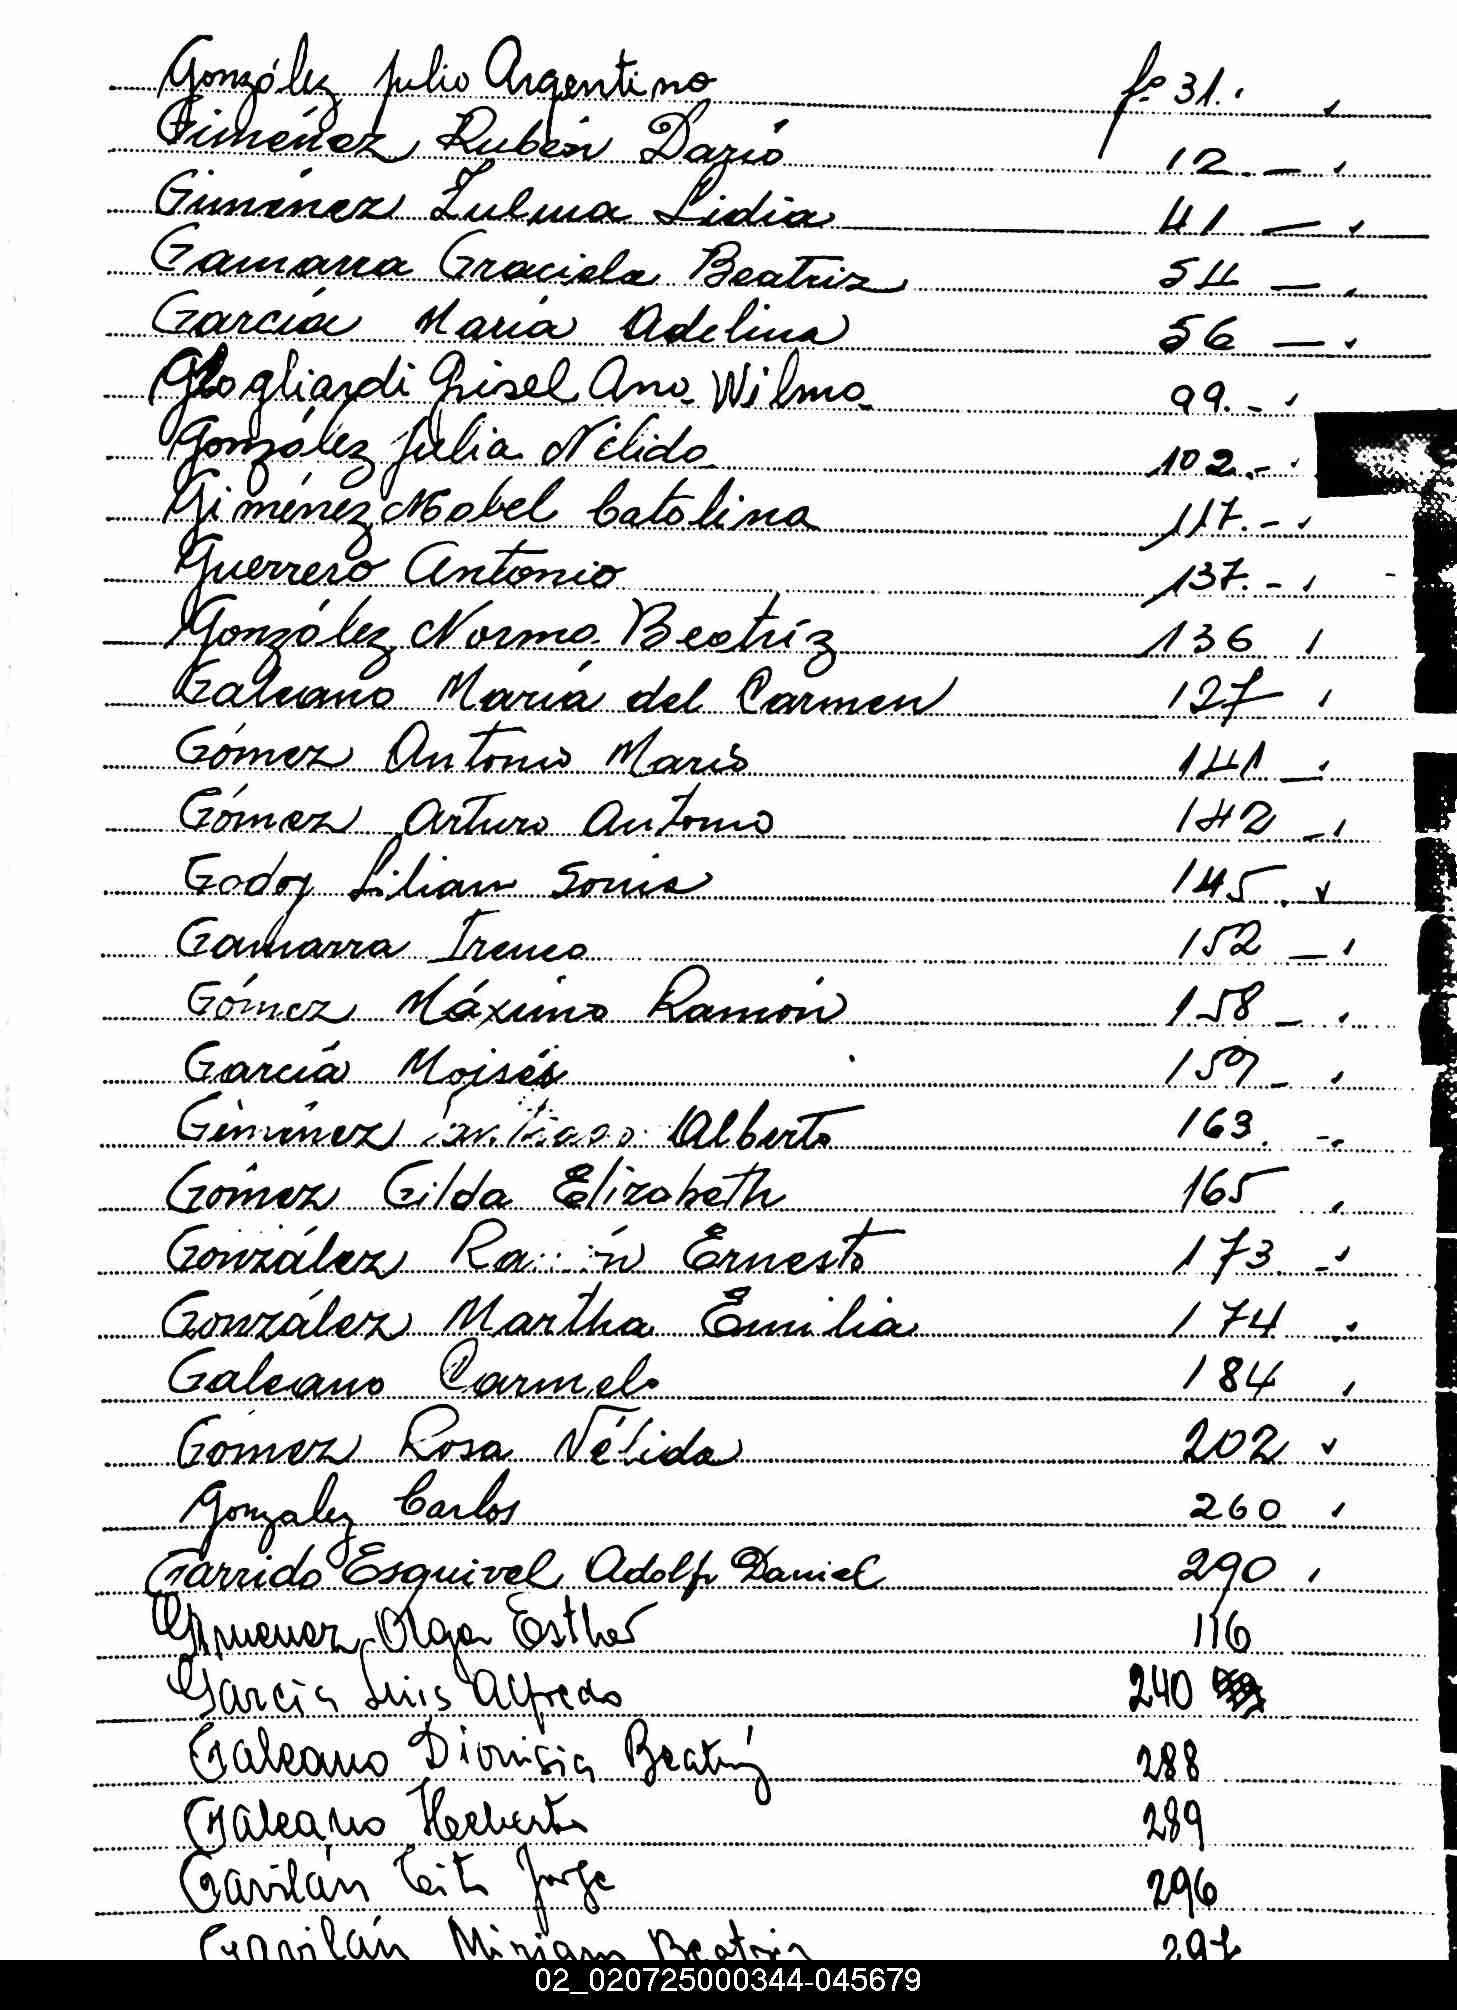 González Julio Argentino fº 31.
Giménez Rubén Darío 12. —
Giménez Zulma Lidia 41 —
Gamarra Graciela Beatriz 54 —
García María Adelina 56 —
Gisel Ana Wilma 99. -
González Julia Nélida 102. -
Giménez Mabel Catalina 117. -
Guerrero Antonio 137. -
González Norma Beatríz 136
Galeano María del Carmen 127
Gómez Antonio Mario 141 —
Gómez Arturo Antonio 142 -
Godoy Lilian Sonia 145
Gamarra Ireneo 152 —
Gómez Máximo Ramón 158 -
García Moisés 159 -
Giménez Alberto 163. -
Gómez Gilda Elizabeth 165
González Ramón Ernesto 173 -
González Martha Emilia 174
Galeano Carmelo 184
Gómez Rosa Nélida 202
Gonzalez Carlos 260
Garrido Esquivel Adolfo Daniel 290
Gimenez Olga Esther 116
Garcia Luis Alfredo 240
Galeano Dionisia Beatríz 288
Galeano Heberto 289
Gavilán Tito Jorge 296
Gavilán Miriam Beatriz 297
02_020725000344-045679